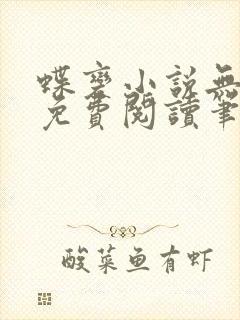 蝶变小说無
免費閱讀筆
酸菜鱼有虾